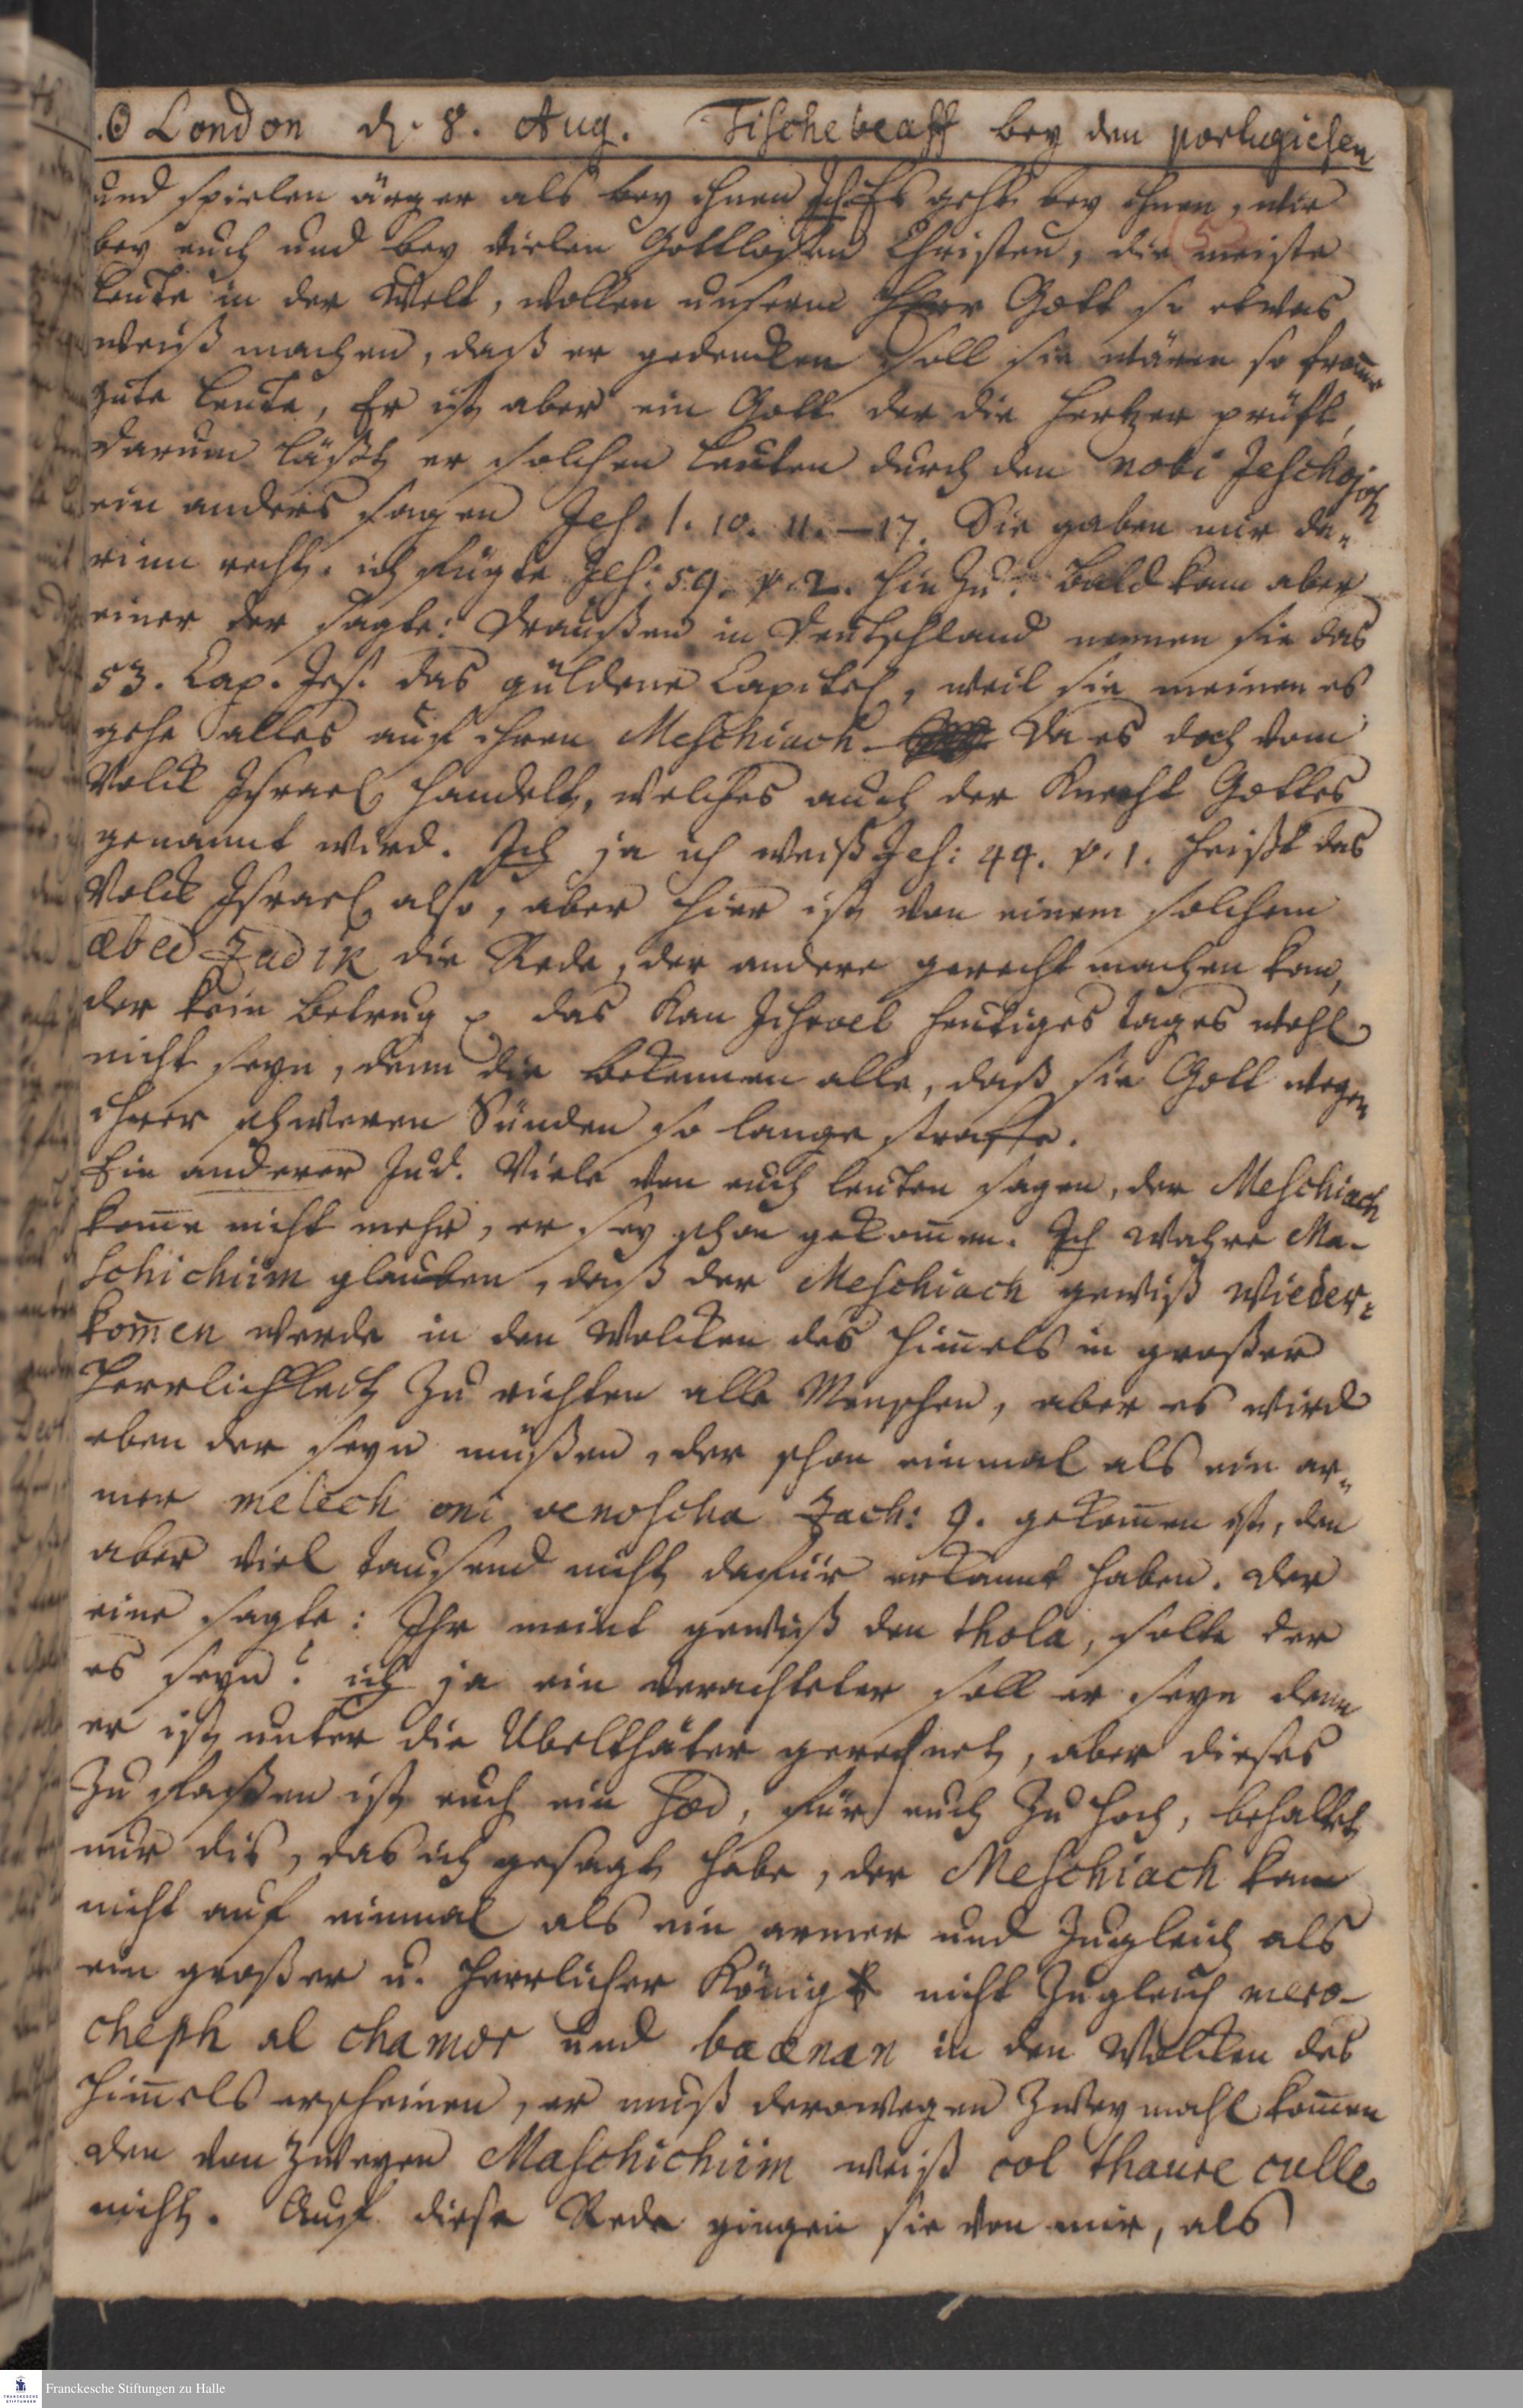 ☉ London d. 8. Aug. Tischebeaff bey den portugiesen
und spielen ärger als bey ihnen Ich Es geht bey ihnen, wie
bey euch und bey vielen Gottlosen Christen, die meiste
Leute in der Welt, wollen unserm HErr Gott so etwas
weiß machen, daß er gedencken soll sie wären so from̃e
gute Leute, Er ist aber ein Gott der die Hertzen prüft,
darum läßt er solchen Leuten durch den nobi Jeschajah
ein anders sagen Jes. 1. 10. 11. – 17. Sie gaben mir da-
rinn recht. ich fügte Jes: 59. v. 2. hinzu. Bald kam aber
einer der sagte: Draußen in Deutschland nennen sie das
53. Cap. Jes. das güldene Capitel, weil sie meinen es
gehe alles auf ihren Meschiach da es doch vom
Volck Israel handelt, welches auch der Knecht Gottes
genannt wird. Ich ja ich weiß Jes: 44. v. 1. heißt das
Volck Israel also, aber hier ist von einem solchem
æbed Zadik die Rede, der andere gerecht machen kan,
der kein Betrug das kan Jisroel heutiges tages wohl
nicht seyn, denn die bekennen alle, daß sie Gott wegen
ihrer schweren Sünden so lange straffe.
Ein anderer Jud. Viele von euch Leuten sagen, der Meschiach
kom̃e nicht mehr, er sey schon gekom̃en. Ich wahre Ma-
schichiim glauben, daß der Meschiach gewiß wieder-
kom̃en werde in den Wolcken des Him̃els in großer
Herrlichkeit zu richten alle Menschen, aber es wird
eben der seyn müßen, der schon einmal als ein ar-
mer melech oni venoscha Zach: 9. gekom̃en ist, den
aber viel tausend nicht dafür erkannt haben. der
eine sagte: Ihr meint gewiß den thola, solte der
es seyn? ich ja ein verachteter soll er seyn denn
er ist unter die Ubelthäter gerechnet, aber dieses
zu faßen ist euch ein sod, für euch zu hoch, behaltet
nur dis, das ich gesagt habe, der Meschiach kam
nicht auf einmal als ein armer und zugleich als
ein großer u. herrlicher König nicht zugleich mero-
cheph al chamor und baænan in den Wolcken des
Him̃els erscheinen, er muß derowegen zweymahl kom̃en
den von zweyen Maschichiim weiß col thaure culle
nicht. Auf diese Rede gingen sie von mir, als
Franckesche Stiftungen zu Halle